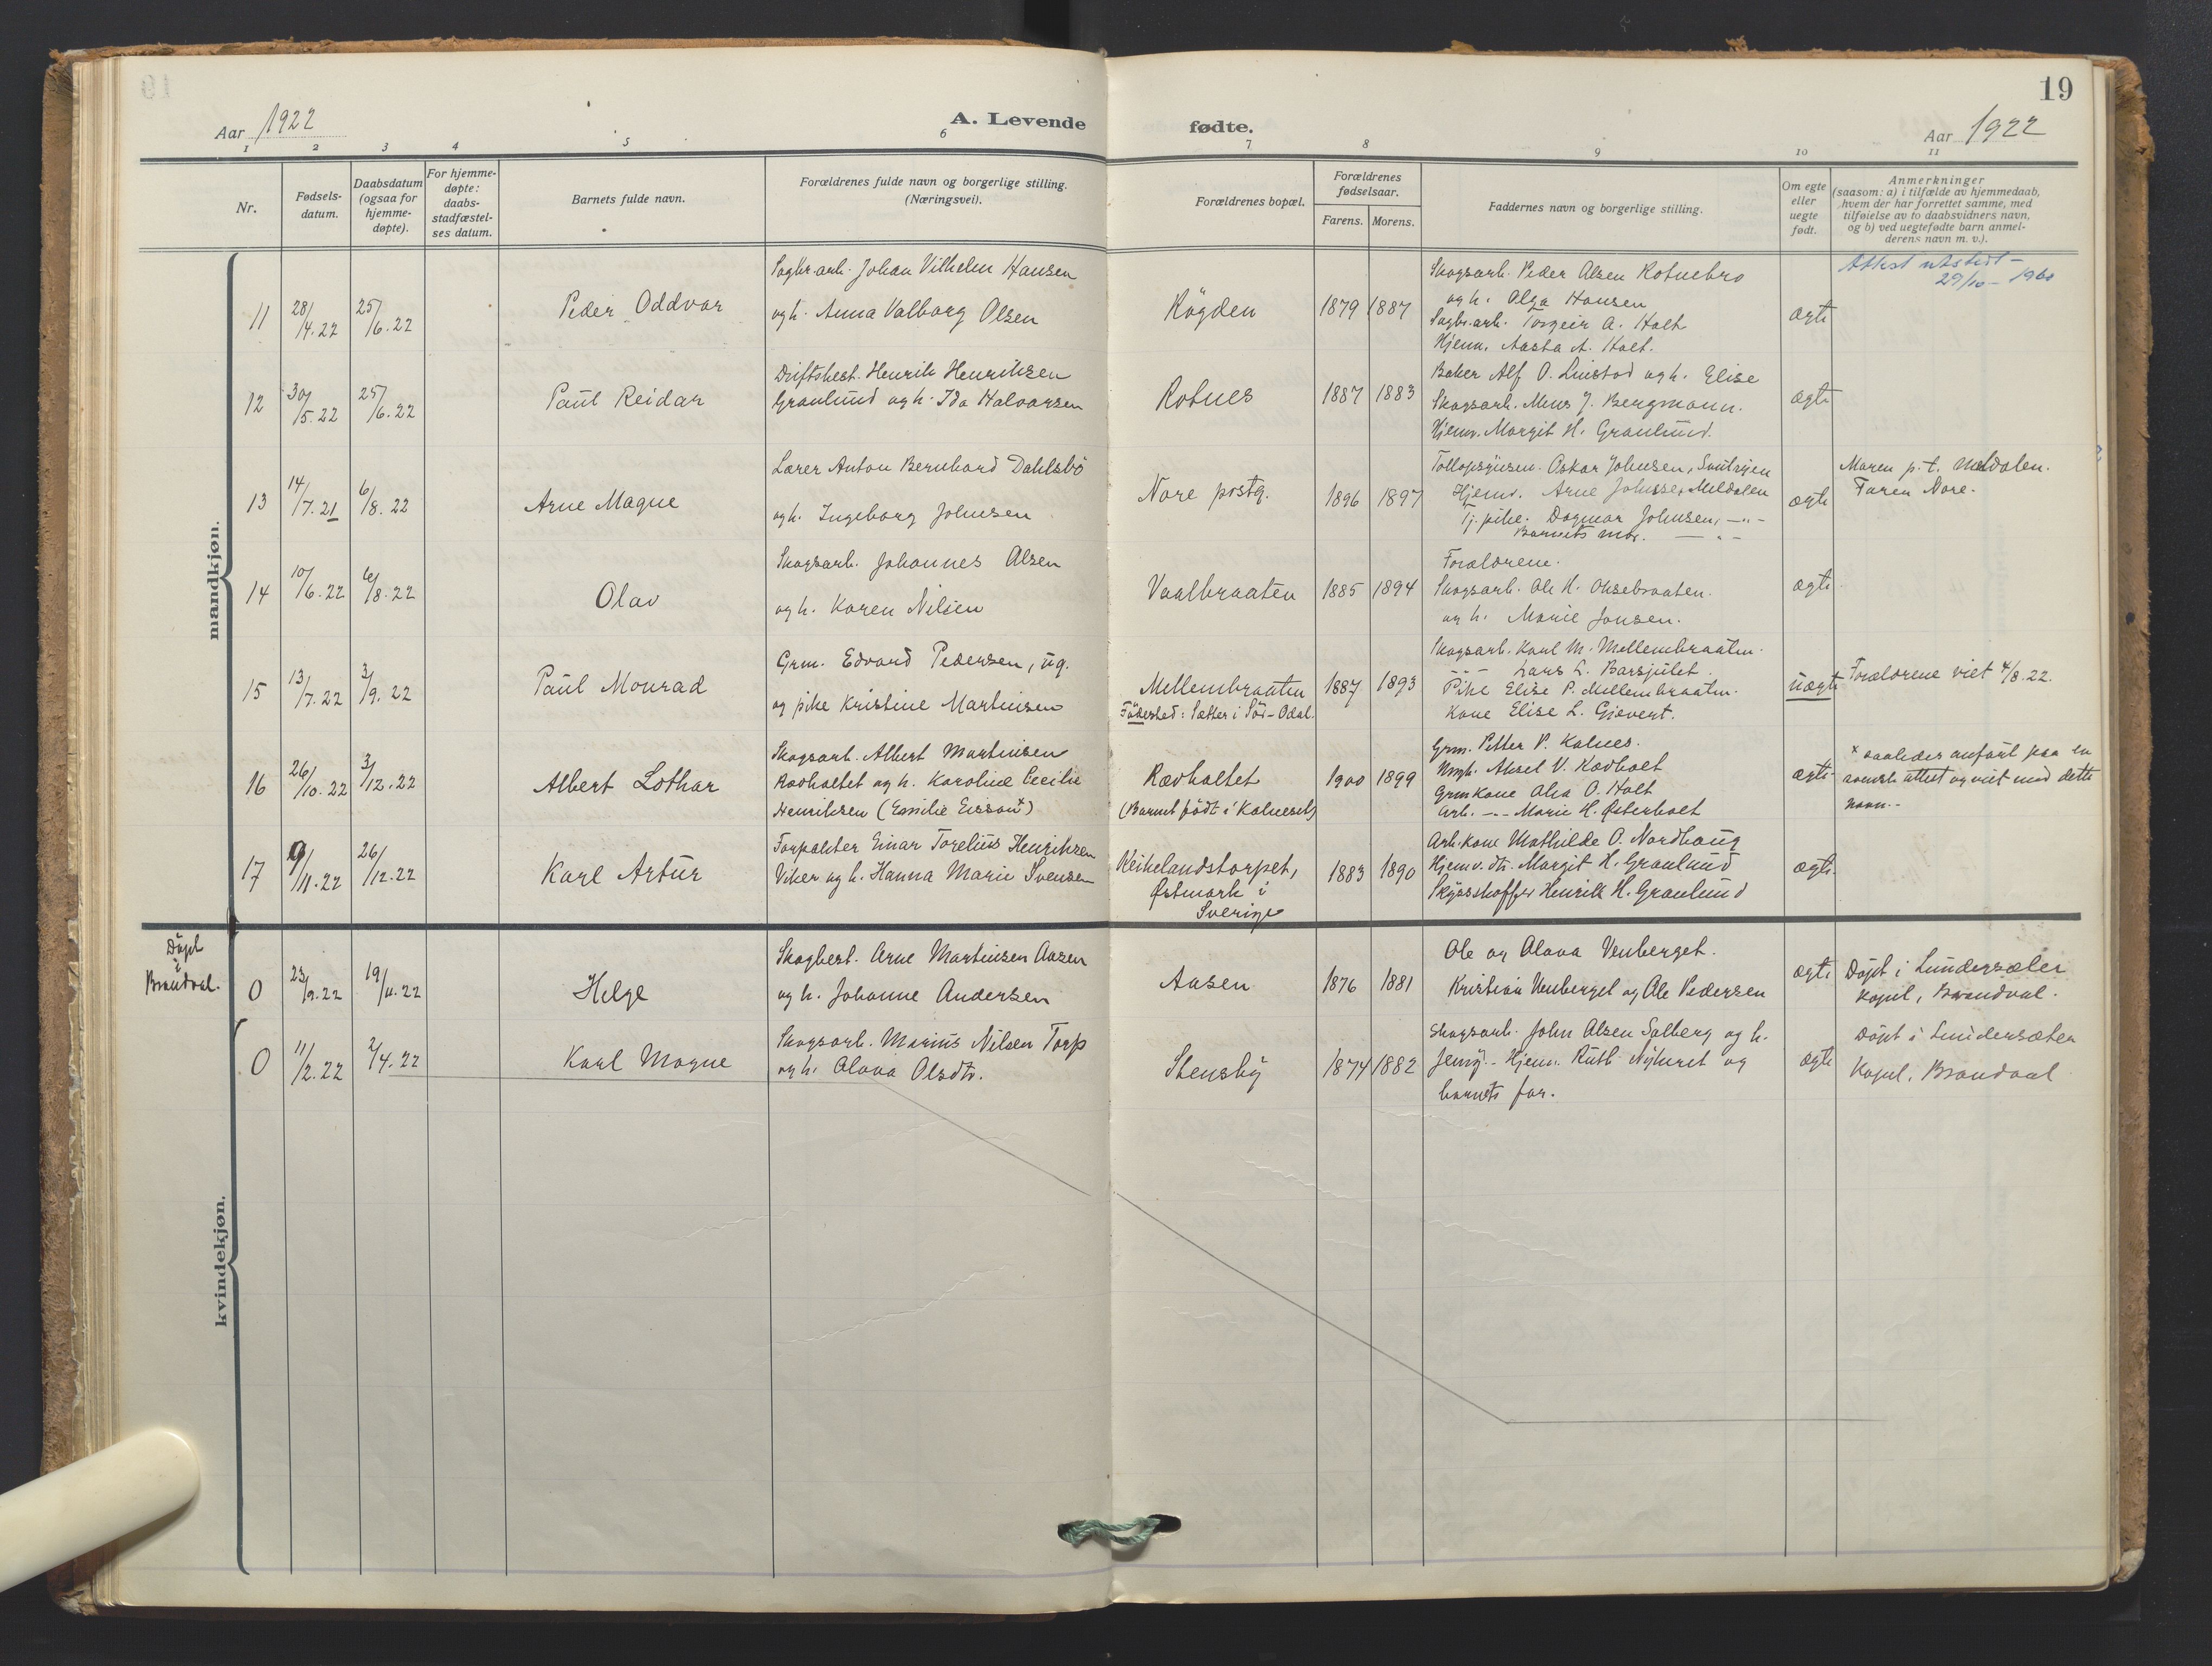 19
Aar 1922
A. Levende fødte.
Aar 1922
1 2 3 4 5 6 7 8 9 10 11
Nr.
Fødsels-
datum.
Daabsdatum
(ogsaa for
hjemme-
døpte).
For hjemme-
døpte:
daabs-
stadfæstel-
ses datum.
Barnets fulde navn.
Forældrenes fulde navn og borgerlige stilling.
(Næringsvei).
Forældrenes bopæl.
Forældrenes
fødselsaar.
Farens. Morens.
Faddernes navn og borgerlige stilling.
Om egte
eller
uegte
født.
Anmerkninger
(saasom: a) i tilfælde av hjemmedaab,
hvem der har forrettet samme, med
tilføielse av to daabsvidners navn,
og b) ved uegtefødte barn anmel-
derens navn m. v.).
mandkjøn.
11
28/4.22
25/6.22
Peder Oddvar
Sagbr.arb. Johan Vilhelm Hansen
og h. Anna Valborg Olsen
Rögden
1879 1887
Skogsarb. Peder Olsen Rotnebro
og h. Olga Hansen
Sagbr.arb. Torgeir A. Holt
Hjemv. Aasta A. Holt.
ægte
Attest utstedt -
29/10 - 1960
12
30/5.22
25/6.22
Paul Reidar
Driftsbest. Henrik Henriksen
Granlund og h. Ida Halvorsen
Rotnes
1887 1883
Baker Alf O. Linstad og h. Elise
Skogsarb. Mens J. Bergmann.
Hjemv. Margit H. Granlund.
ægte
13
14/7.21
6/8.22
Arne Magne
Lærer Anton Bernhard Dahlsbö
og h. Ingeborg Johnsen
Nore prstg.
1896 1897
Tollopsynsm. Oskar Johnsen,
Hjemv. Arne Johnsen, Meldalen
Tj. pike. Dagmar Johnsen, -"-
Barnets mor. -"-
ægte
Moren p. t. Meldalen.
Faren Nore.
14
10/6.22
6/8.22
Olav
Skogsarb. Johannes Olsen
og h. Karen Nilsen
Vaalbraaten
1885 1894
Forældrene.
Skogsarb. Ole H. Oksebraaten.
og h. Marie Jonsen.
ægte
15
13/7.22
3/9.22
Paul Monrad
Grm. Edvard Pedersen, ug.
og pike Kristine Martinsen
Mellembraaten
Födested: Sætter i Sör-Odal.
1887 1893
Skogsarb. Karl M. Mellembraaten.
-"- Lars L. Barsjulet.
Pike Elise P. Mellembraaten.
Kone Elise L. Gjevert.
uægte
Forældrene viet 4/8.22.
16
26/10.22
3/12.22
Albert Lothar
Skogsarb. Albert Martinsen
Rævholtet og h. Karoline Cecilie
Henriksen (Emilie Ersson x)
Rævholtet
(Barnet födt i Kalneset)
1900 1899
Grm. Petter P. Kalnes.
Ungk. Aksel V. Rævholt
Grm kone Alea O. Holt
Arb. -"- Marie H. Østerholt
ægte
x saaledes anført paa en
svensk attest og viet med dette
navn.-
17
9/11.22
26/12.22
Karl Artur
Forpakter Einar Torelius Henriksen
Viker og h. Hanna Marie Svensen
Keikelandstorpet,
Østmark i
Sverige
1883 1890
Arb. kone Mathilde O. Nordhaug
Hjemv. dtr. Margit H. Granlund
Skysskaffer Henrik H. Granlund
ægte.
Döpt
i
Brandval.
0
23/9.22
19/11.22
Helge
Skogbest. Arne Martinsen Aasen
og h. Johanne Andersen
Aasen
1876 1881
Ole og Olava Venberget.
Kristian Venberget og Ole Pedersen
ægte
Döpt i Lundersæter
kapel, Brandval.
0
11/2.22
2/4.22
Karl Magne
Skogsarb. Marius Nilsen Torp
og h. Olava Olsdtr.
Stensby
1874 1882
Skogsarb. John Olsen Solberg og h.
Jenny. - Hjemv. Ruth Nyhuset og
barnets far.
ægte
Döpt i Lundersæter
kapel. Brandval
kvindekjøn.